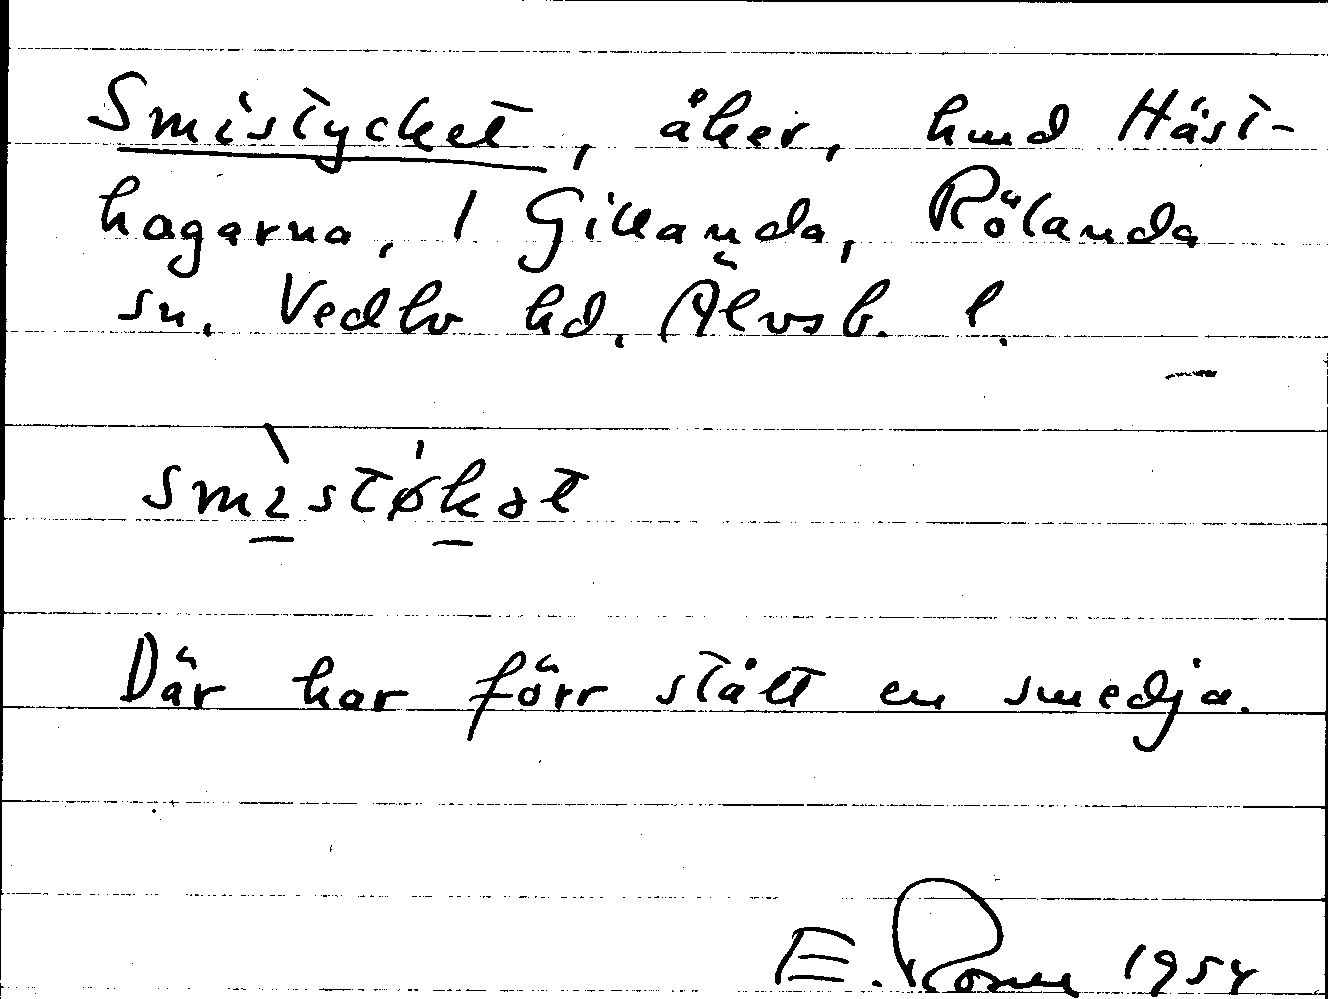 Smistycket, åker, hmd Häst-
hagarna, 1 Gillanda, Rölanda
sn. Vedbo hd. Älvsb. l.
smìstø̍kət
Där har förr stått en smedja.
E. 1954